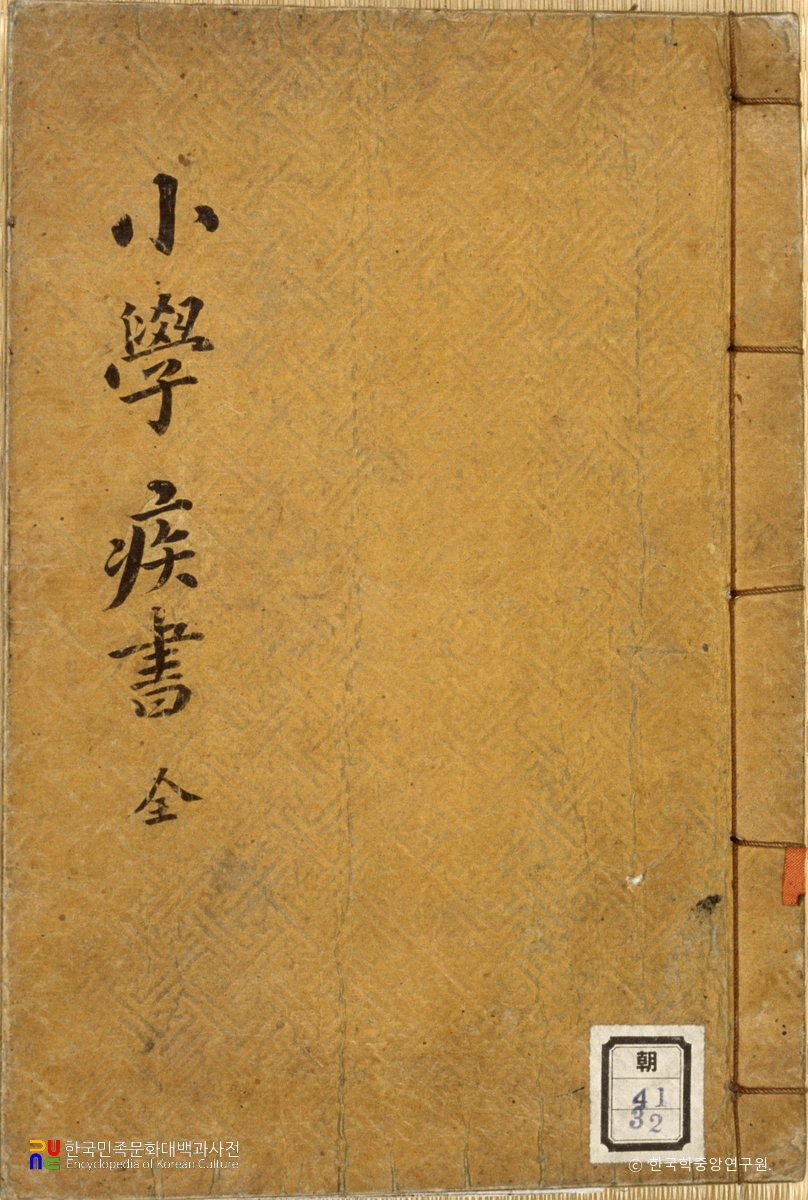 小學疾書 全
朝
41
32
한국민족문화대백과사전
Encyclopedia of Korean Culture
© 한국학중앙연구원